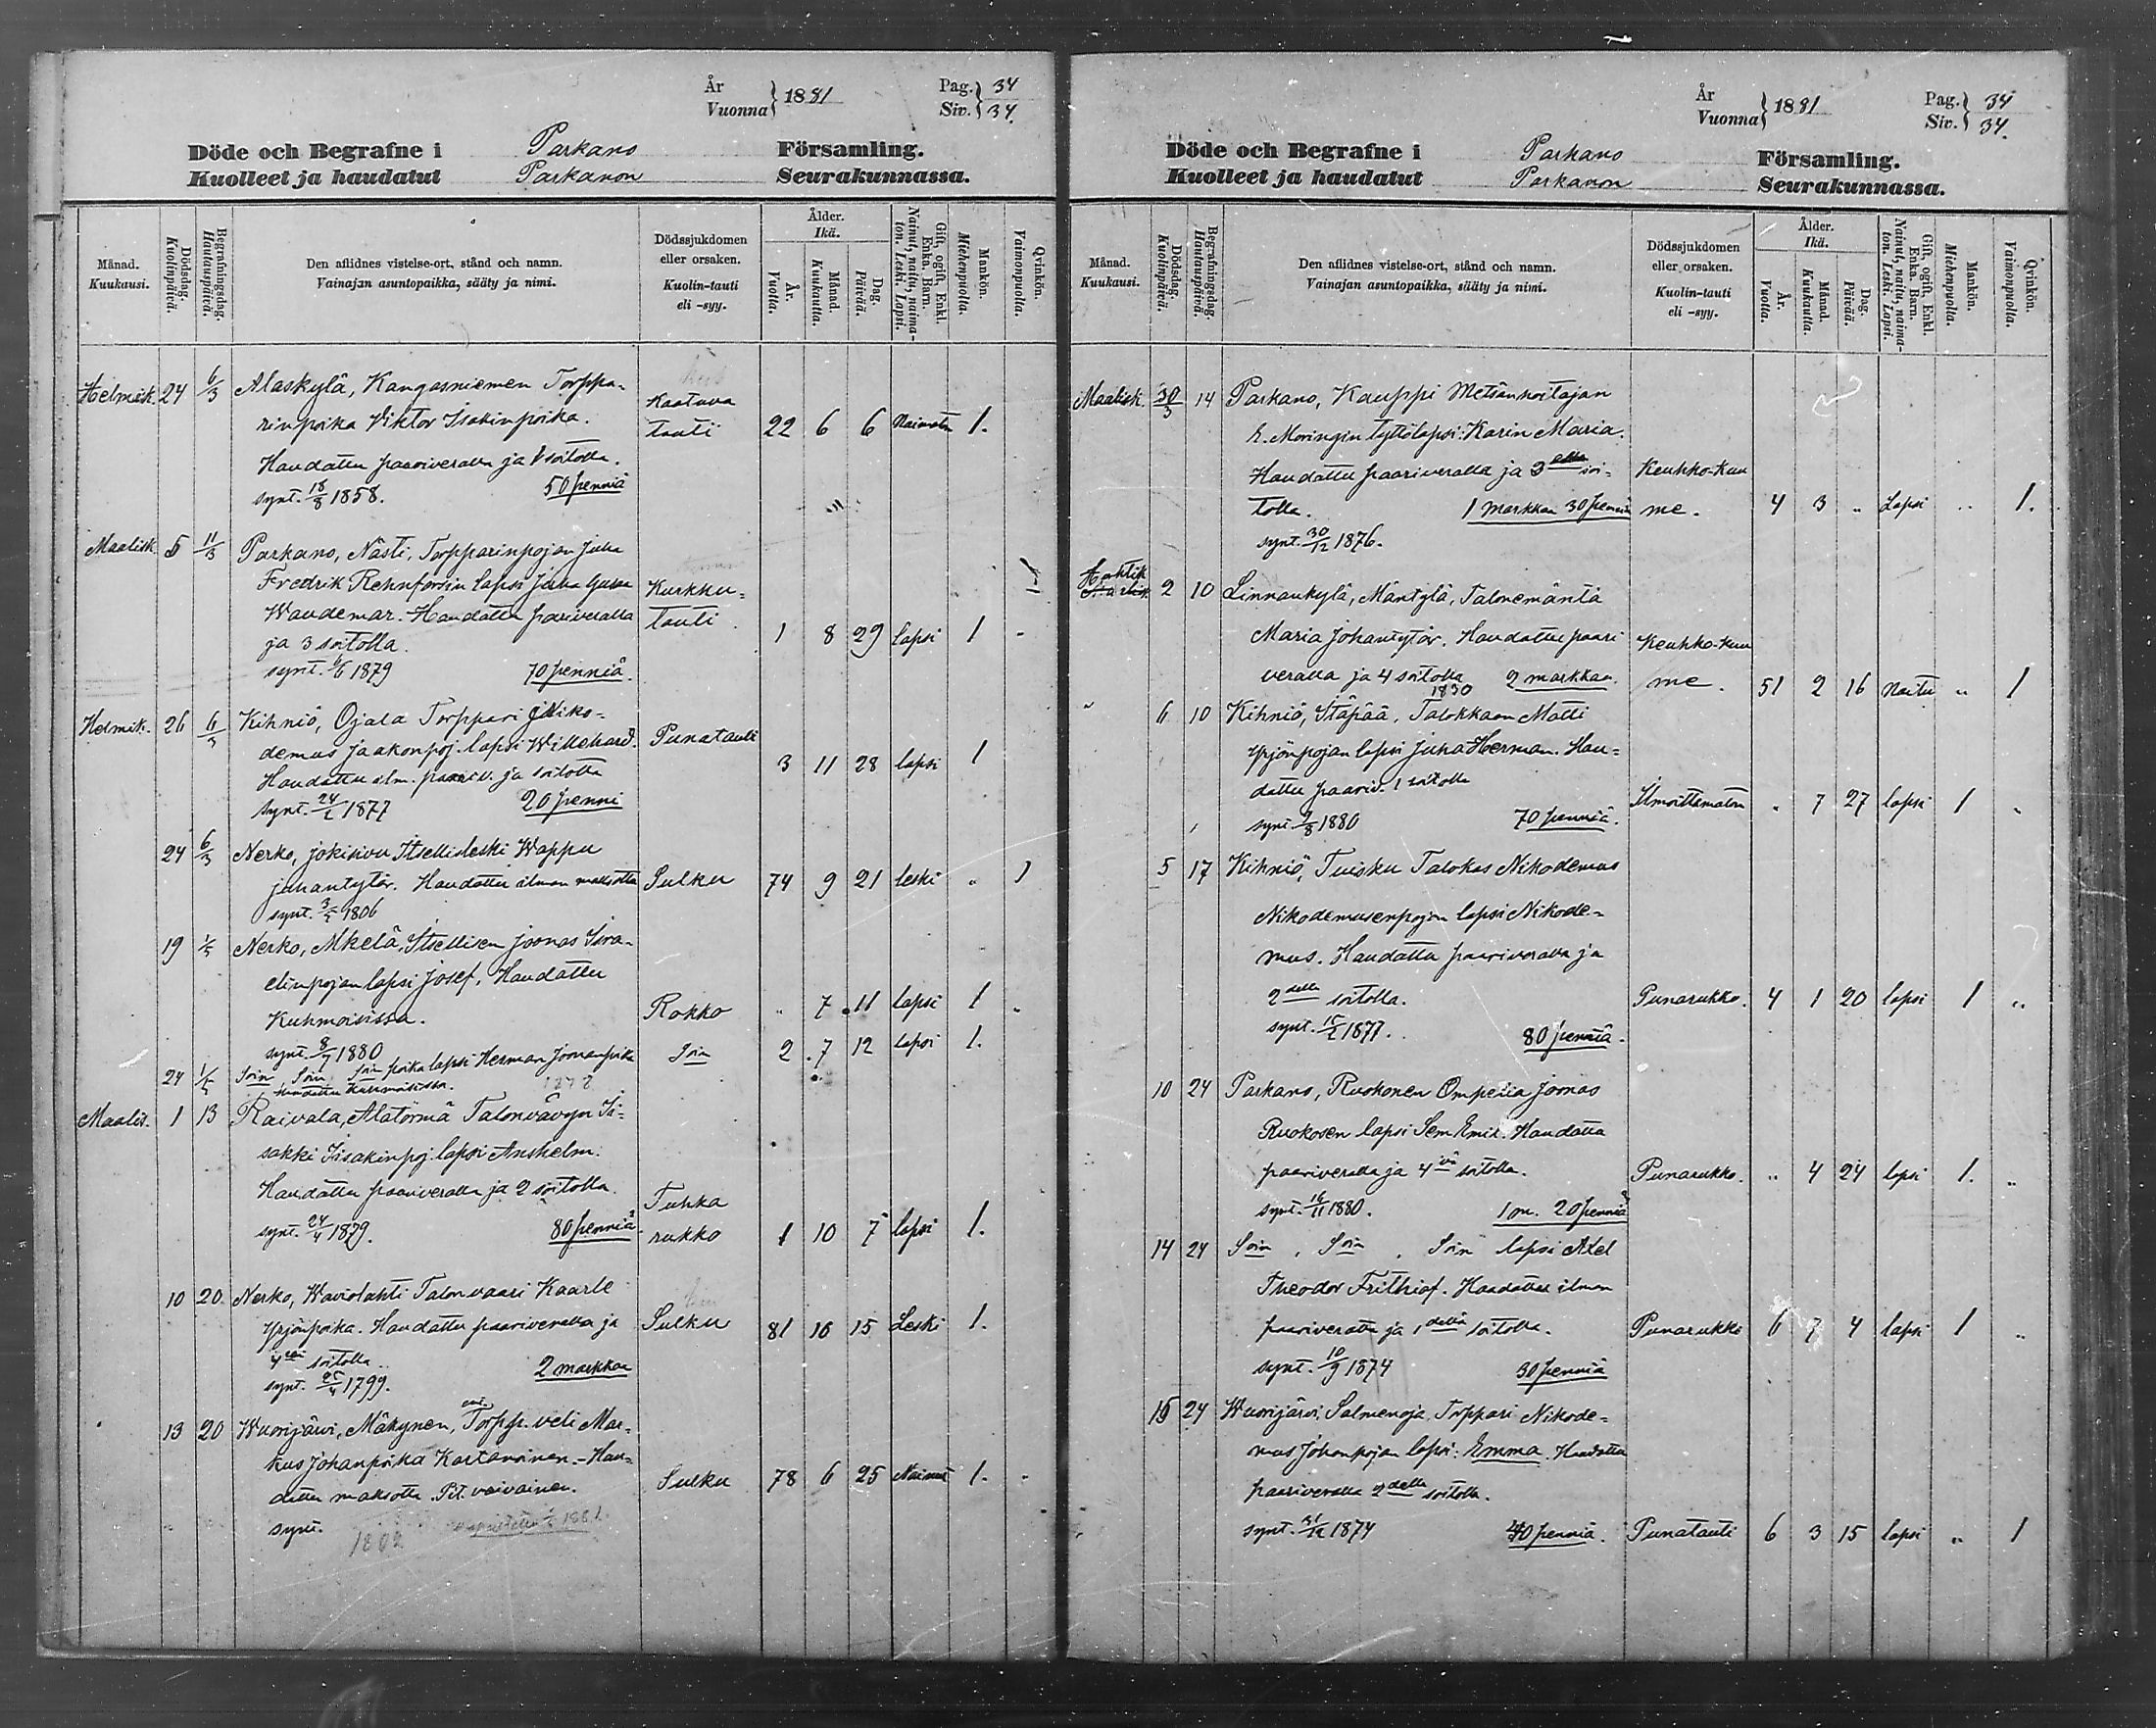 År
Vuonna } 1881
Pag. } 34
Siv. } 34.
Döde och Begrafne i Parkano Församling.
Kuolleet ja haudatut Parkanon Seurakunnassa.
Månad. Kuukausi.
Dödsdag. Kuolinpäivä.
Begrafningsdag. Hautauspäivä.
Den aflidnes vistelse-ort, stånd och namn.
Vainajan asuntopaikka, sääty ja nimi.
Dödssjukdomen eller orsaken.
Kuolin-tauti eli -syy.
Ålder. Ikä.
År. Vuotta.
Månad. Kuukautta.
Dag. Päivää.
Gift, ogift, Enkl. Enka. Barn.
Nainut, naitu, naimaton. Leski. Lapsi.
Mankön. Miehenpuolia.
Qvinkön. Vaimonpuolia.
Helmik. 24 6/3 Alaskylä, Kangasniemen Torppa-
rinpoika Viktor Isakinpoika. Kaatuva tauti 22 6 6 Naimaton 1.
Haudattu paariveralla ja soitolla.
synt. 18/8 1858. 50 penniä
Maalisk. 5 11/3 Parkano, Nästi, Torpparinpojan Juha
Fredrik Rehnforsin lapsi Juha
Waudemar. Haudattu paariveralla Kurkku-tauti
ja 3 soitolla. 1 8 29 lapsi 1 -
synt. 6/6 1879 70 penniä.
Helmik. 26 6/3 Kihniö, Ojala Torppari Niko-
demus Jaakonpoj. lapsi Willehard. Punatauti
Haudattu ilm. paariv. ja soitotta 3 11 28 lapsi 1
synt. 1877 20 penni
24 6/3 Nerko, Jokisivu Itsellisleski Wappu
Juhantytär. Haudattu ilman maksotta Sulku 74 9 21 leski „ 1
synt. 1806
19 Nerko, Mkelä, Itsellisen Joonas Isra-
elinpojan lapsi Josef. Haudattu
Kuhmoisissa. Rokko „ 7 11 lapsi 1 „
synt. 8/7 1880
24 Soin Soin Soin poika lapsi Herman Joonanpoika Soin 2 7 12 lapsi 1.
Haudattu Kuhmoisissa. 1878
Maalis. 1 13 Raivala, Alatörmä Talonvävyn Ii-
sakki Iisakinpoj. lapsi Anshelm.
Haudattu paariveralla ja 2 soitolla. Tuhka
synt. 24/4 1879. 80 penniä rukko 1 10 7 lapsi 1.
10 20 Nerko, Waviolahti Talonvaari Kaarle
Yrjönpoika. Haudattu paariveralla ja Sulku 81 10 15 Leski 1.
soitolla.. 2 markkaa
synt. 25/4 1799.
13 20 Wuorijärvi, Mäkynen, Torpp. veli Mar-
kus Johanpoika Kartanoinen. - Hau-
dattu maksotta. Pit. vaivainen. Sulku 78 6 25 Nainut 1. -
synt. 1802 1881.
År
Vuonna } 1881
Pag. } 34
Siv. } 34.
Döde och Begrafne i Parkano Församling.
Kuolleet ja haudatut Parkanon Seurakunnassa.
Månad. Kuukausi.
Dödsdag. Kuolinpäivä.
Begrafningsdag. Hautauspäivä.
Den aflidnes vistelse-ort, stånd och namn.
Vainajan asuntopaikka, sääty ja nimi.
Dödssjukdomen eller orsaken.
Kuolin-tauti eli -syy.
Ålder. Ikä.
År. Vuotta.
Månad. Kuukautta.
Dag. Päivää.
Gift, ogift, Enkl. Enka. Barn.
Nainut, naitu, naimaton. Leski. Lapsi.
Mankön. Miehenpuolia.
Qvinkön. Vaimonpuolia.
Maalisk. 30/3 14 Parkano, Kauppi Metsänhoitajan
E. Moringin tyttölapsi: Karin Maria.
Haudattu paariveralla ja 3 ella soi- Keuhko-kuu
tolla. 1 markkaa 30 penniä me. 4 3 „ Lapsi „ 1.
synt. 30/12 1876.
Huhtik. 2 10 Linnankylä, Mäntylä, Talonemäntä
Maria Johantytär. Haudattu paari Keuhko-kuu
veralla ja 4 soitolla 2 markkaa. me. 51 2 16 Naitu „ 1
1830
„ 6 10 Kihniö, Stäpää, Talokkaan Matti
Yrjönpojan lapsi Juha Herman. Hau-
dattu paariv. 1 soitolla Ilmoittamaton „ 7 27 lapsi 1 „
synt. 9/8 1880 70 penniä.
5 17 Kihniö, Tuisku Talokas Nikodemus
Nikodemusenpojan lapsi Nikode-
mus. Haudattu paariveralla ja
2 della soitolla. Punarukko. 4 1 20 lapsi 1 „
synt. 15/2 1877. 80 penniä.
10 24 Parkano, Ruokonen Ompelia Joonas
Ruokosen lapsi Sem Emil. Haudattu
paariveralla ja 4 soitolla. Punarukko. „ 4 24 lapsi 1. „
synt. 16/11 1880. 1 m. 20 penniä
14 24 Soin, Soin, Soin lapsi Axel
Theodor Frithiof. Haudattu ilman
paariveratta ja 1 dellä soitolla. Punarukko 6 7 4 lapsi 1 „
synt. 10/9 1874 30 penniä
15 24 Wuorijärvi, Salmenoja, Torppari Nikode-
mus Johanpojan lapsi: Emma. Haudattu
paariveralla 2 della soitolla.
synt. 31/12 1874 40 penniä. Punatauti 6 3 15 lapsi „ 1